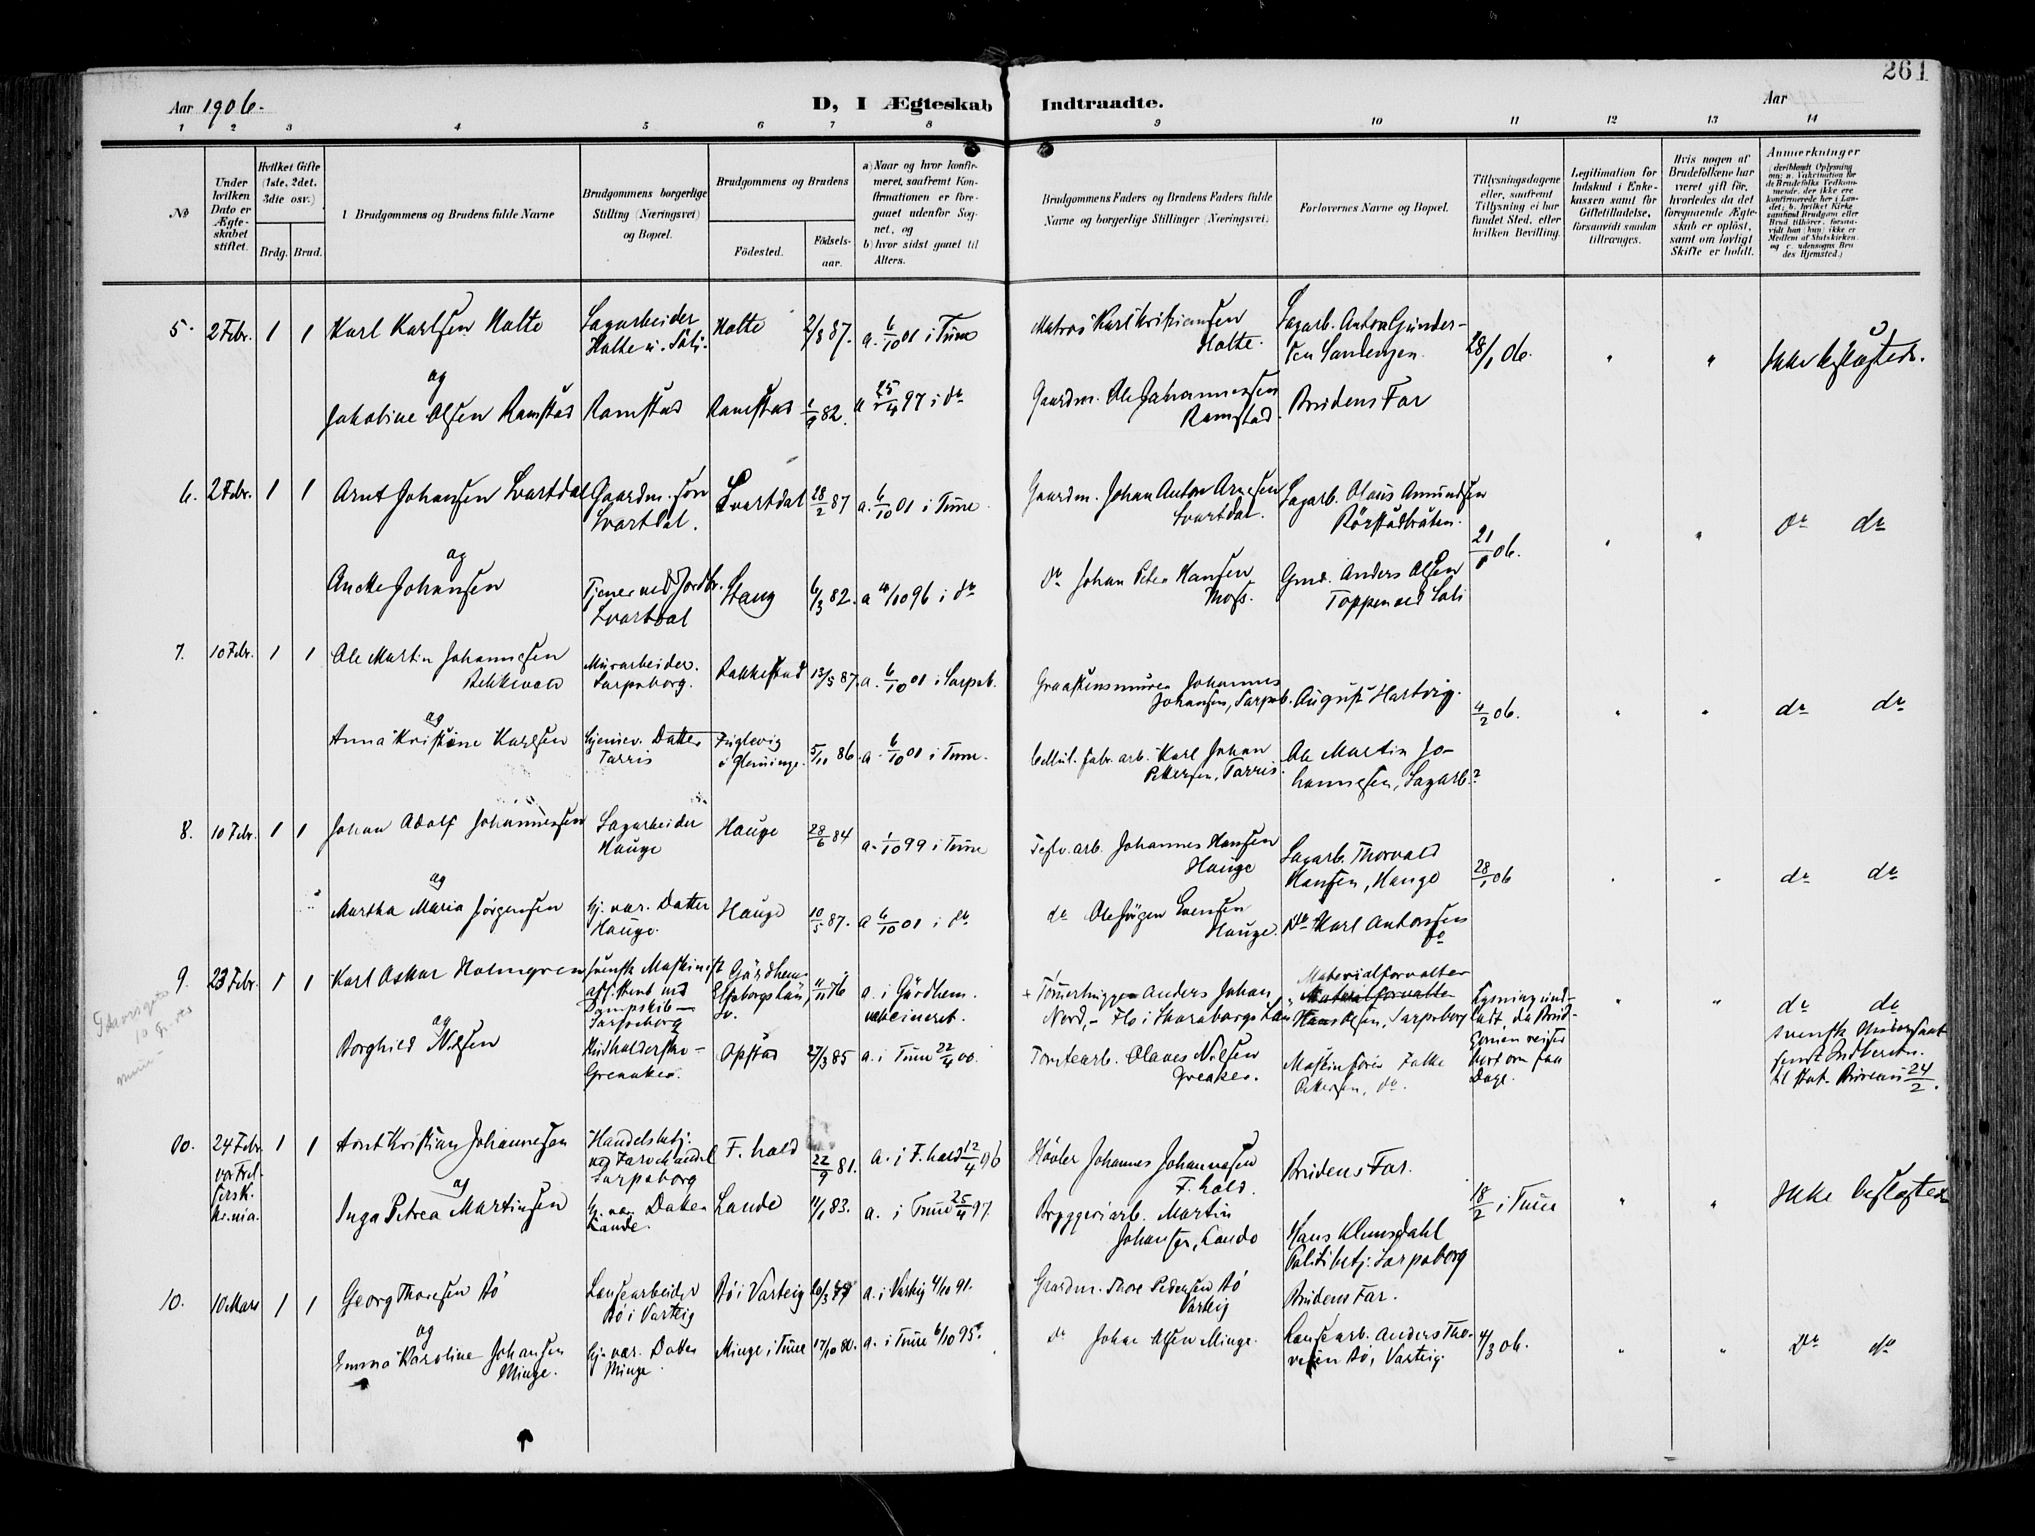 261
Aar 1906.
D, I Ægteskab Indtraadte.
Aar
1 2 3 4 5 6 7 8 9 10 11 12 13 14
No
Under hvilken Dato er Ægteskabet stiftet.
Hvilket Gifte (1ste, 2det, 3die osv.)
Brdg. Brud.
1 Brudgommens og Brudens fulde Navne
Brudgommens borgerlige Stilling (Næringsvei) og Bopæl.
Brudgommens og Brudens
Fødested.
Fødselsaar.
a) Naar og hvor konfirmeret, saafremt Konfirmationen er foregaaet udenfor Sognet, og
b) hvor sidst gaaet til Alters.
Brudgommens Faders og Brudens Faders fulde Navne og borgerlige Stillinger (Næringsvei)
Forlovernes Navne og Bopæl.
Tillysningsdagene eller, saafremt Tillysning ei har fundet Sted, efter hvilken Bevilling.
Legitimation for Indskud i Enkekassen samt for Giftetilladelse, forsaavidt saadan tiltrænges.
Hvis nogen af Brudefolkene har været gift før, hvorledes da det foregaaende Ægteskab er opløst, samt om lovligt Skifte er holdt.
Anmerkninger
(deriblandt Oplysning om: a. Vakcination for de Brudefolks Vedkommende, der ikke ere konfirmerede her i Landet; b. hvilket Kirkesamfund Brudgom eller Brud tilhører, forsaavidt han (hun) ikke er Medlem af Statskirken, og c. udensogns Brudes Hjemsted.)
5. 2 Febr. 1 1 Karl Karlsen Holte
Sagarbeider
Holte
2/8 87.
a. 6/10 01 i Tune
Matros Karl Kristiansen
Holte.
Sagarb. Anton Gunder-
sen Sandengen.
28/1 06.
"
"
Ikke beslægtede.
og
Jakobine Olsen Ramstad
Ramstad
Ramstad
1/9 82.
a 25/4 97 i do
Gaardm. Ole Johannessen
Ramstad.
Brudens Far
6. 2 Febr. 1 1 Arnt Johansen Svartdal
Gaardm. søn
Svartdal.
Svartdal
28/2 87
a. 6/10 01 i Tune
Gaardm. Johan Anton Arnesen
Svartdal.
Sagarb. Olaus Amundsen
21/1 06.
"
"
do do
og
Johansen
Tjener ved Jordbr.
Svartdal
6/3 82.
i do
do Johan Peter Hansen
Gmd. Anders Olsen
Toppen ved Soli
7. 10 Febr. 1 1 Ole Martin Johannesen
Bekkevold
Murarbeider.
Sarpsborg.
Rakkestad
13/5 87.
a. 6/10 01 i Sarpsb.
Graastensmurer Johannes
Johansen, Sarpsb.
August Hartvig.
4/2 06.
"
"
do do
og
Anna Kristine Karlsen
Hjemmev. Datter
Tarris
Fuglevig
i Glemminge.
5/11 86.
a. 6/10 01 i Tune.
Cellul. fabr. arb. Karl Johan
Pettersen, Tarris.
Ole Martin Jo-
hannesen, Sagarb.
8. 10 Febr. 1 1 Johan Adolf Johannessen
Sagarbeider
Hauge
Hauge
28/6 84
a. 1/10 99 i Tune
Teglv. arb. Johannes Hansen
Hauge
Sagarb. Thorvald
Hansen, Hauge
28/1 06
"
"
do do
og
Martha Maria Jørgensen
Hj. vær. Datter
Hauge.
Hauge
10/5 87.
a 6/10 01 i do
do Ole Jørgen Evensen
Hauge.
do Karl Antonsen
do
9. 23 Febr. 1 1 Karl Oskar Holmgren
svensk Maskinist
assistent ved
Dampskib –
Sarpsborg
Gärdhem
Elfsborgs län,
Sv.
11/11 76
a. i Gärdhem.
vakcineret.
+ Tømmerhugger Anders Johan
Nord, – Flo i Skaraborgs Län
Materialforvalter
Hans Olsen, Sarpsborg
Lysning und-
ladt, da Brud-
gommen reiser
bort om faa
Dage.
"
"
do do
svensk Undersaat
sendt Indberetn.
til Stat. Bureau 24/2.
og
Borghild Nilsen
Husholderske –
Greaaker.
Opstad
27/3 85
a. i Tune 22/4 00.
Tomtearb. Olaves Nilsen
Greaker.
Maskinfører Falke
Pettersen, do.
10. 24 Febr. 1 1 Arnt Kristian Johannesen
Handelsbetj.
Sarpsborg
F. hald
22/9 81.
a. i F. hald 12/4 96
Høvler Johannes Johannesen
F. hald.
Brudens Far.
18/2 i Tune
"
"
Ikke beslægtede
og
Inga Petrea Martinsen
Hj. vær. Datter
Lande.
Lande
11/1 83.
a. i Tune 25/4 97.
Bryggeriarb. Martin
Johansen, Lande
Hans Klemsdahl
Politibetj. Sarpsborg
10. 10 Mars 1 1 Georg Thoresen Bø
Landsearbeider
Bø i Varteig
Bø i Varteig
a. i Varteig 4/10 91.
Gaardm. Thore Pedersen Bø
Varteig
Brudens Far.
4/3 06.
"
"
do do
og
Emma Karoline Johansen
Minge.
Hj. vær. Datter
Minge.
Minge i Tune
17/10 80.
a. i Tune 6/10 95.
do Johan Olsen Minge.
Anders Tho-
resen Bø, Varteig.